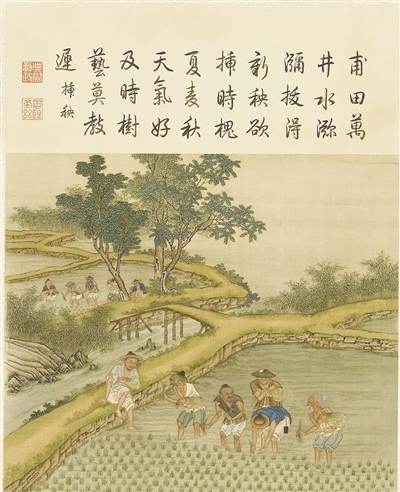 甫田萬
井水㳽
瀰拔得
新秧欲
挿時槐
夏麦秋
天氣好
及時樹
藝莫教
遲 挿秧